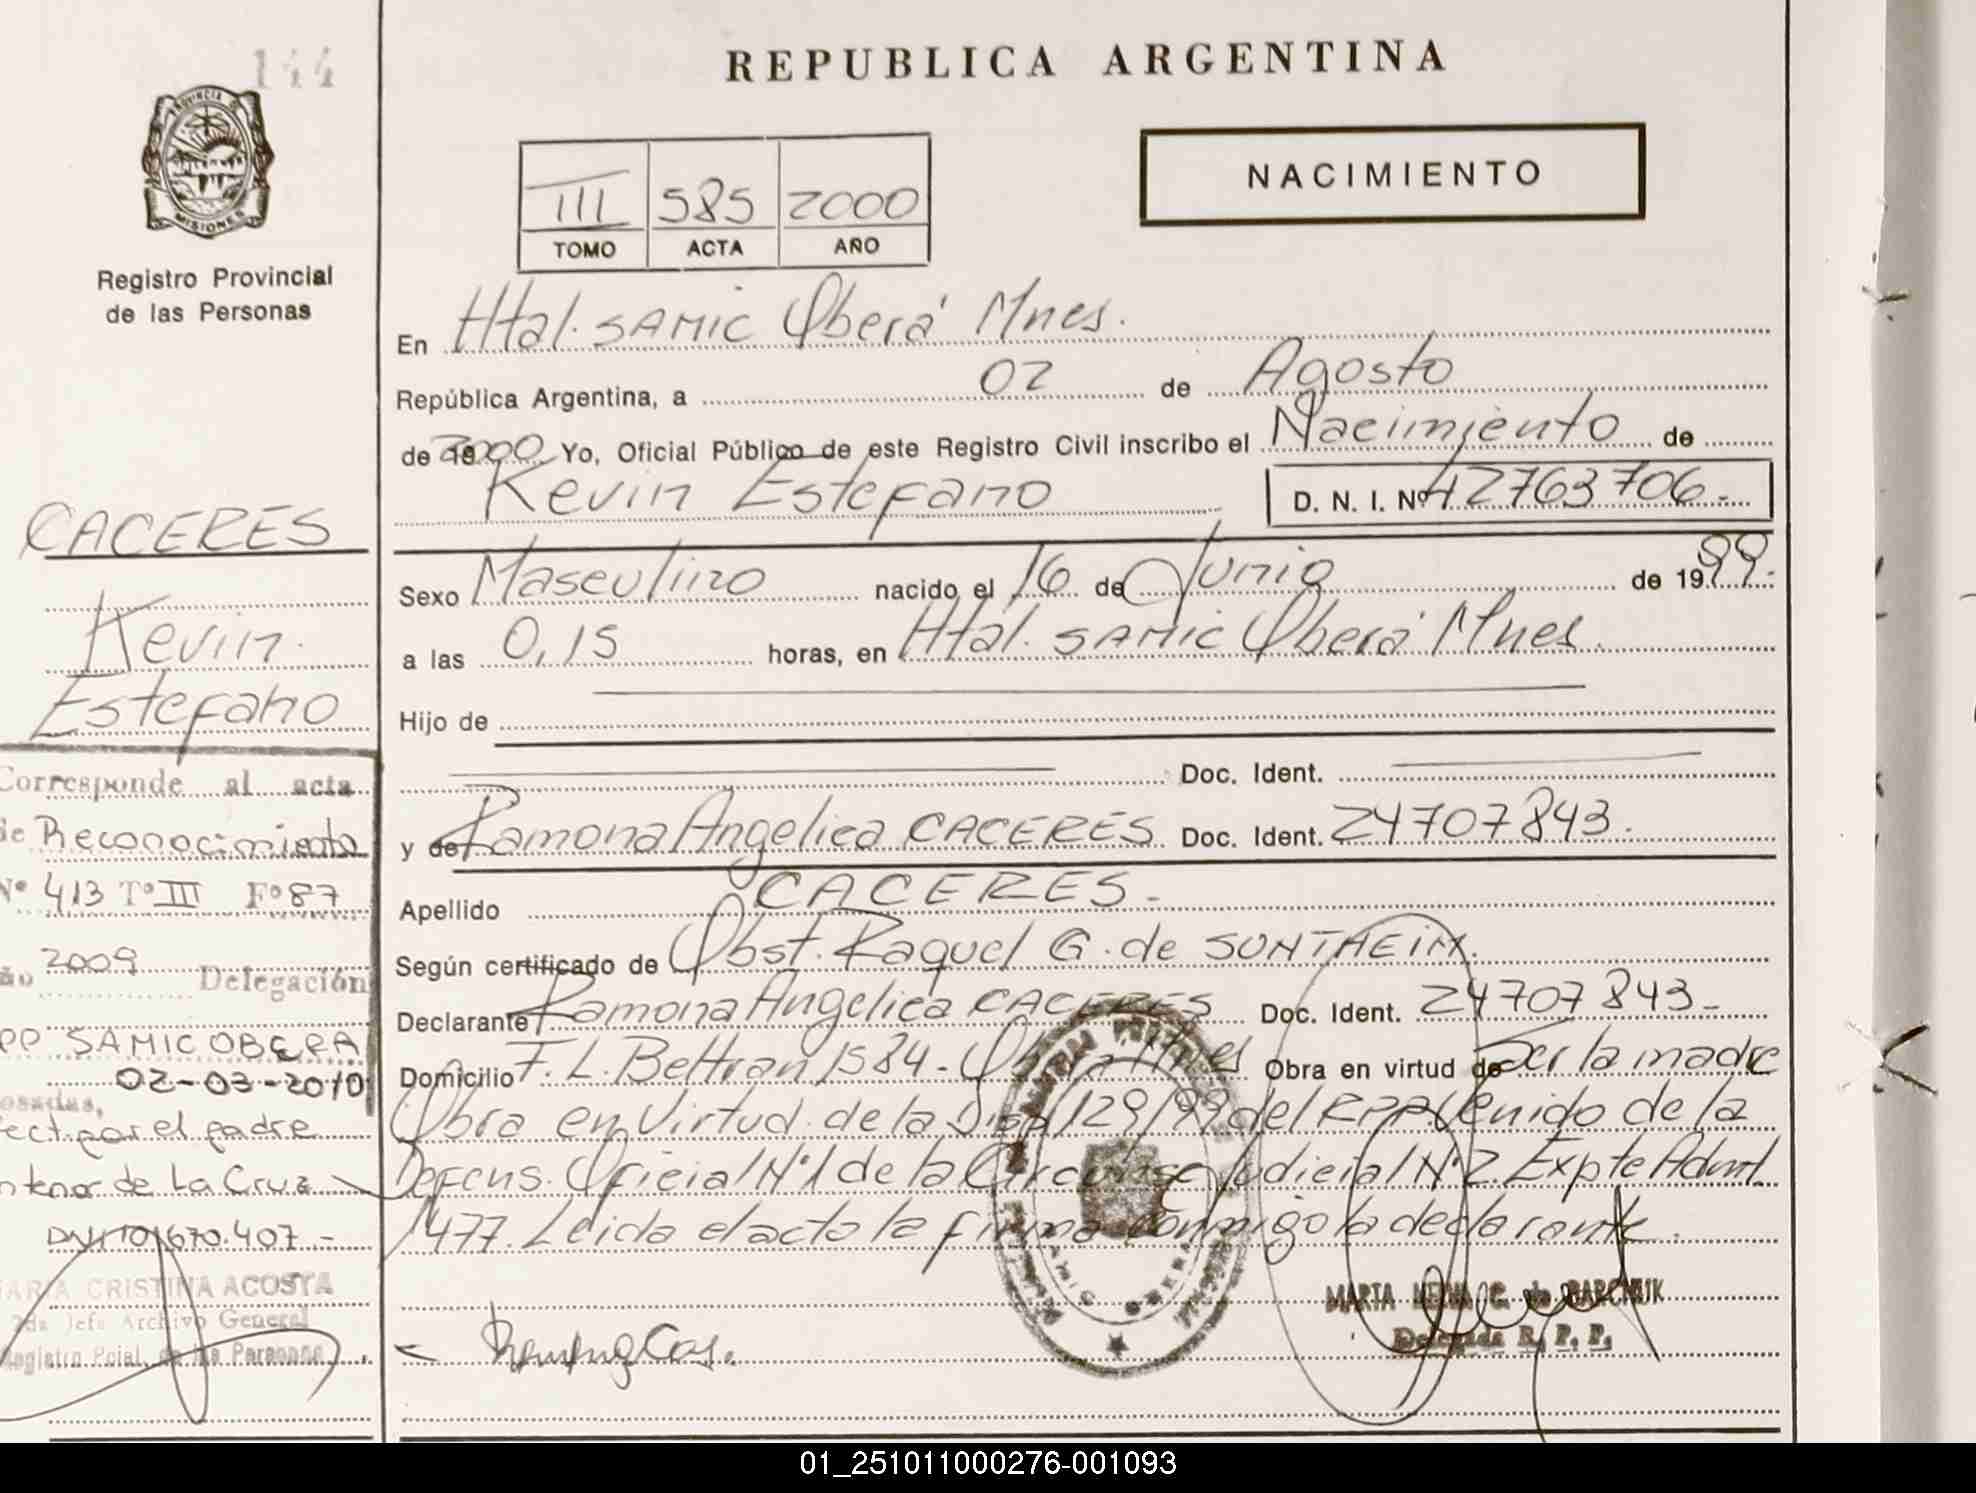 144
PROVINCIA DE
MISIONES
Registro Provincial
de las Personas
CACERES
Kevin
Estefano
Corresponde al acta
de Reconocimiento
Nº 413 Tº III Fº 87
ño 2009 Delegación
PP SAMIC OBERA
02-03-2010
osadas,
fect. por el padre
ntenor de La Cruz
DNI 10.670.407.-
ARIA CRISTINA ACOSTA
2da Jefe Archivo General
Registro Pcial. de las Personas
REPUBLICA ARGENTINA
III 585 2000
TOMO ACTA AÑO
NACIMIENTO
En Htal. SAMIC Oberá Mnes.
República Argentina, a 02 de Agosto
de 2000 Yo, Oficial Público de este Registro Civil inscribo el Nacimiento de
Kevin Estefano D. N. I. Nº 42763706.-
Sexo Masculino nacido el 16 de Junio de 1999.-
a las 0,15 horas, en Htal. SAMIC Oberá Mnes.
Hijo de
Doc. Ident.
y de Ramona Angelica CACERES Doc. Ident. 24707843.
Apellido CACERES.-
Según certificado de Obst. Raquel G. de SONTHEIM.
Declarante Ramona Angelica CACERES Doc. Ident. 24707843.-
Domicilio F. L. Beltran 1584 - Mnes Obra en virtud de Ser la madre
Obra en virtud de la Disp 129/99 del RPP Venido de la
Defens. Oficial Nº1 de la Circunsc Judicial Nº2. Expte Admt.
1477. Leida el acta la firma conmigo la declarante.
MARTA C. de BARCHUK
Delegada R. P. P.
01_251011000276-001093